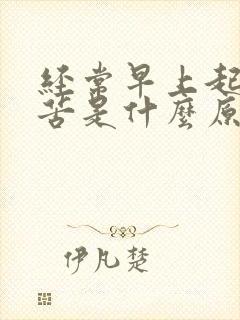 经常早上起
苦是什麼原
伊凡楚